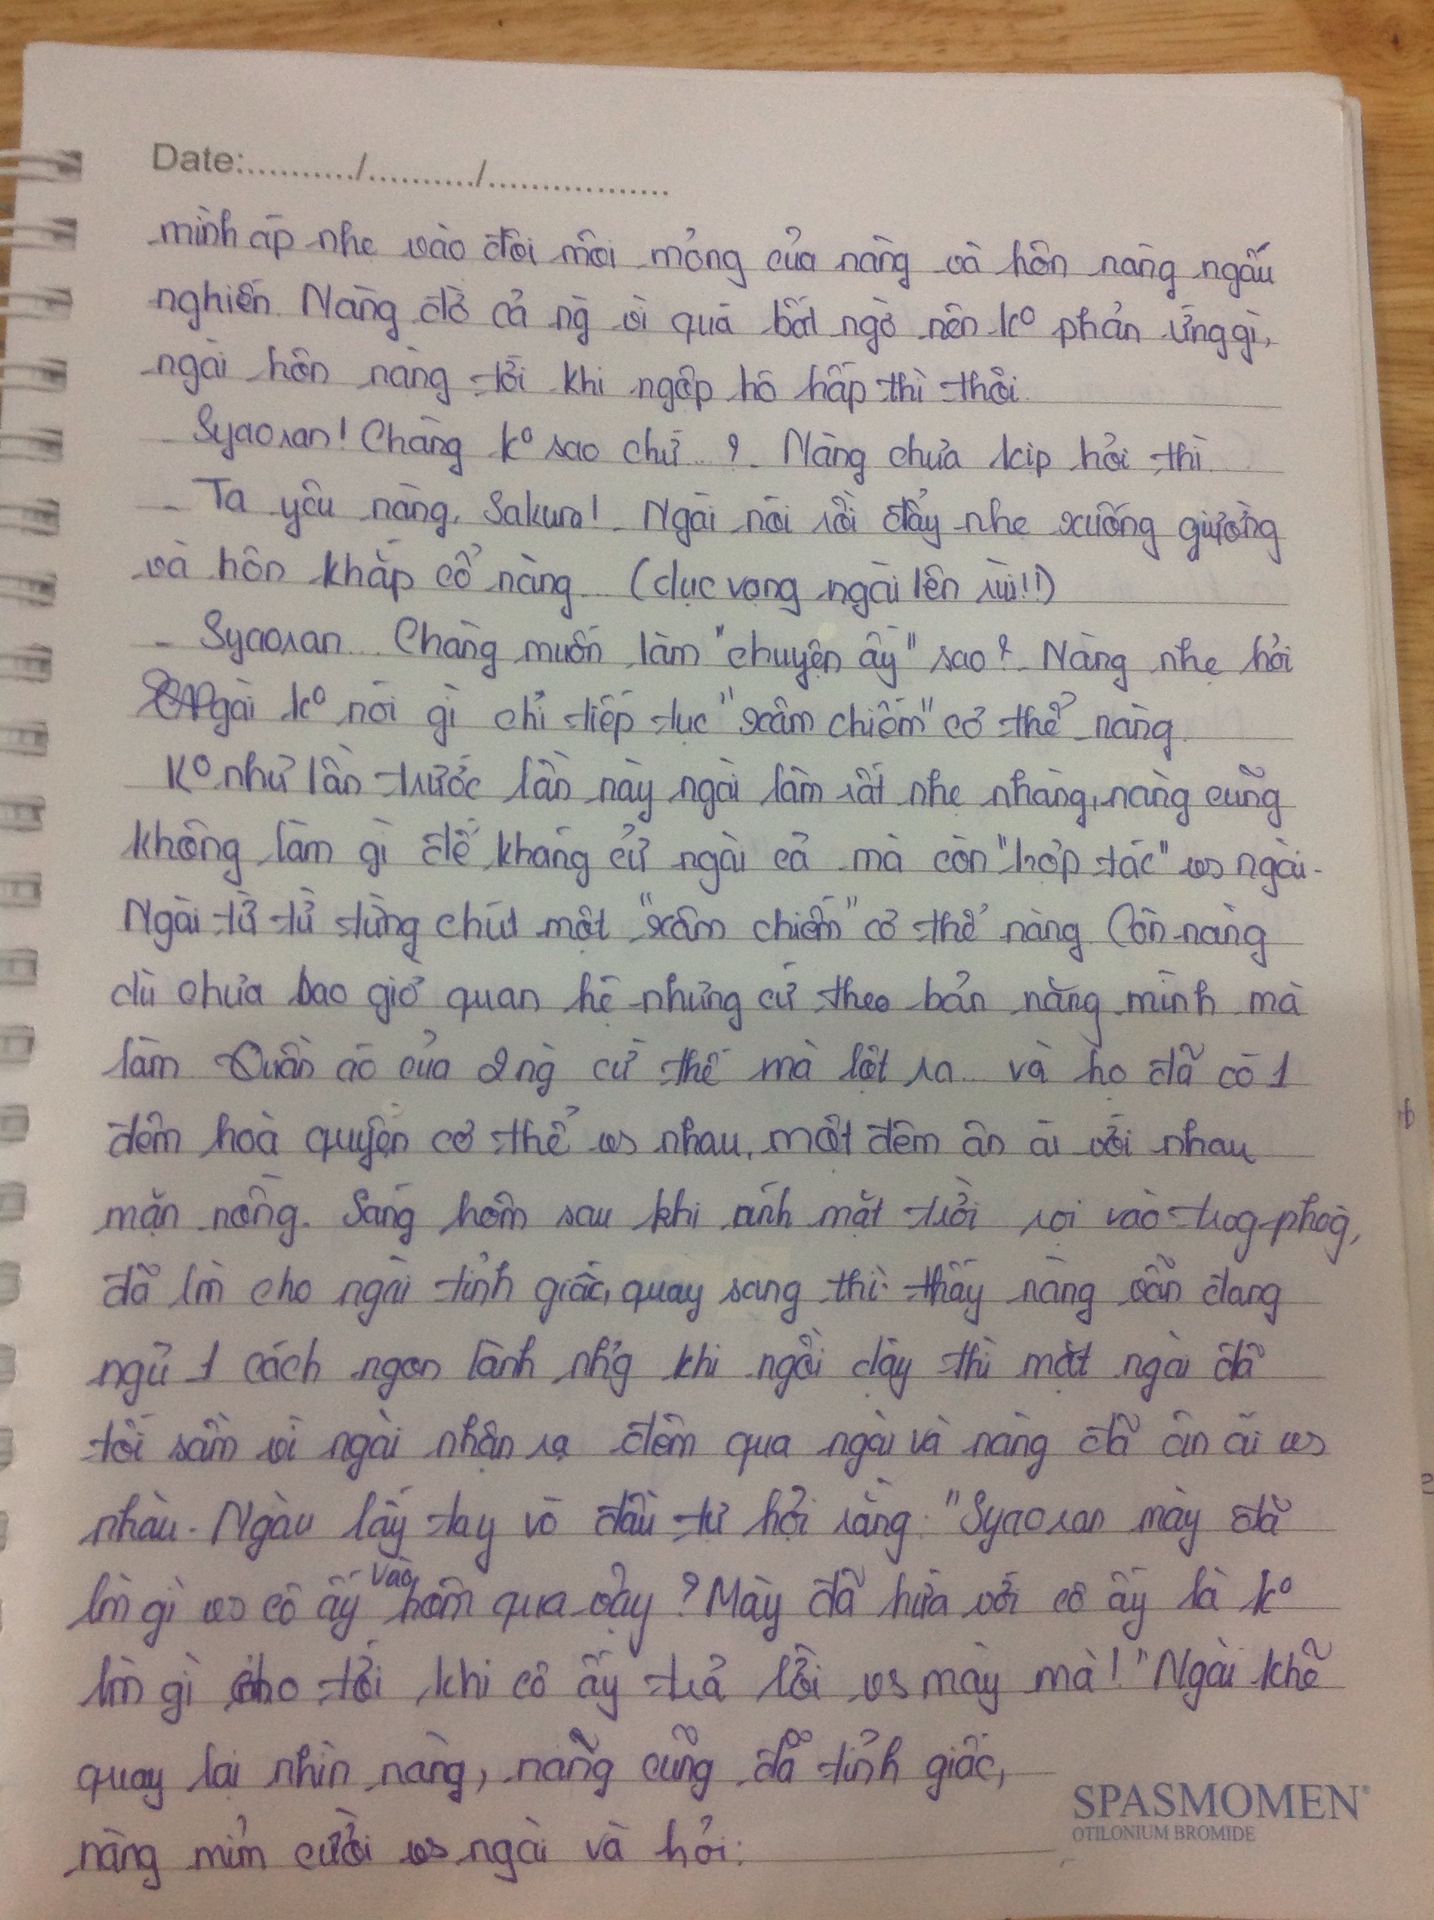 Date:........../........../.................
mình áp nhẹ vào đôi môi mỏng của nàng và hôn nàng ngấu
nghiến. Nàng đờ cả ng vì quá bất ngờ nên k° phản ứng gì,
ngài hôn nàng tới khi ngộp hô hấp thì thôi.
Syaoran! Chàng k° sao chứ..? Nàng chưa kịp hỏi thì
- Ta yêu nàng, Sakura! Ngài nói rồi đẩy nhẹ xuống giường
và hôn khắp cổ nàng... (dục vọng ngài lên rùi!!)
- Syaoran... Chàng muốn làm "chuyện ấy" sao? Nàng nhẹ hỏi
Ngài k° nói gì chỉ tiếp tục "xâm chiếm" cơ thể nàng.
K° như lần trước lần này ngài làm rất nhẹ nhàng, nàng cũng
không làm gì để kháng cự ngài cả mà còn "hợp tác" vs ngài.
Ngài từ từ từng chút một "xâm chiếm" cơ thể nàng Còn nàng
dù chưa bao giờ quan hệ nhưng cứ theo bản năng mình mà
làm Quần áo của 2 ng cứ thế mà lột ra... và họ đã có 1
đêm hoà quyện cơ thể vs nhau, một đêm ân ái với nhau
mặn nồng. Sáng hôm sau khi ánh mặt trời rọi vào trog phòg,
đã lm cho ngài tỉnh giấc, quay sang thì thấy nàng vẫn đang
ngủ 1 cách ngon lành nhg khi ngồi dậy thì mặt ngài đã
tối sầm vì ngài nhận ra đêm qua ngài và nàng đã ân ái vs
nhàu. Ngàu lấy tay vò đầu tự hỏi rằng: "Syaoran mày đã
lm gì vs cô ấy vào hôm qua vậy? Mày đã hứa với cô ấy là k°
lm gì cho tới khi cô ấy trả lời vs mày mà!" Ngài khẽ
quay lại nhìn nàng, nàng cũng đã tỉnh giấc,
nàng mỉm cười vs ngài và hỏi:
SPASMOMEN®
OTILONIUM BROMIDE